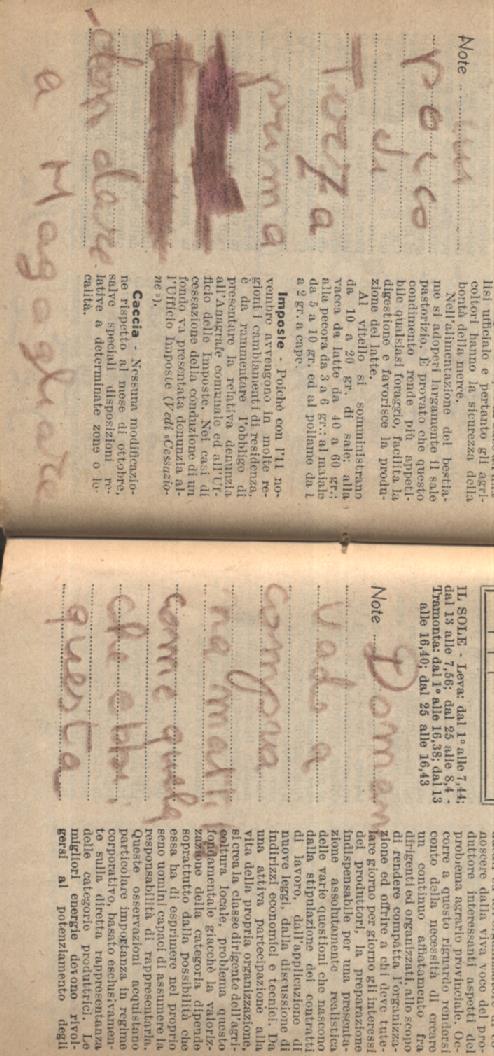 lisi ufficiale e pertanto gli agri-
coltori hanno la sicurezza della
bontà della merce.
Nell'alimentazione del bestia-
me si adoperi largamente il sale
pastorizio. È provato che questo
condimento rende più appeti-
bile qualsiasi foraggio, facilita la
digestione e favorisce la produ-
zione del latte.
Al vitello si somministrano
da 10 a 20 gr. di sale; alla
vacca da latte da 40 a 60 gr.;
alla pecora da 3 a 6 gr.; al maiale
da 5 a 10 gr. ed al pollame da 1
a 2 gr. a capo.
Imposte - Poichè con l'11 no-
vembre avvengono in molte re-
gioni i cambiamenti di residenza,
è da rammentare l'obbligo di
presentare la relativa denunzia
all'Anagrafe comunale ed all'Uf-
ficio delle Imposte. Nei casi di
cessazione della conduzione di un
fondo va presentata denunzia al-
l'Ufficio Imposte (Vedi «Cessazio-
ne»).
Caccia - Nessuna modificazio-
ne rispetto al mese di ottobre,
salve speciali disposizioni re-
lative a determinate zone o lo-
calità.
Note
poico
di
Terza
prima
don dare
a
IL SOLE - Leva: dal 1° alle 7,44;
dal 13 alle 7,56; dal 25 alle 8,4 -
Tramonta: dal 1° alle 16,38; dal 13
alle 16,40; dal 25 alle 16,43
Note Doman
vado a
compra
na mati
come quela
che ebbi
questa
noscere dalla viva voce dei pro-
duttori interessanti aspetti del
problema agrario provinciale. Oc-
corre a questo riguardo rendersi
conto della necessità di creare
un continuo affiatamento fra
dirigenti ed organizzati, allo scopo
di rendere compatta l'organizza-
zione ed offrire a chi deve tute-
lare giorno per giorno gli interessi
dei produttori, la preparazione
indispensabile per una presenta-
zione assolutamente realistica
delle varie questioni che nascono
dalla stipulazione dei contratti
di lavoro, dall'applicazione di
nuove leggi, dalla discussione di
indirizzi economici e tecnici. Da
una attiva partecipazione alla
vita della propria organizzazione,
si crea la classe dirigente dell'agri-
coltura locale, problema questo
fondamentale giacchè la valoriz-
zazione della categoria dipende
soprattutto dalla possibilità che
essa ha di esprimere nel proprio
seno uomini capaci di assumere la
responsabilità di rappresentarla.
Queste osservazioni acquistano
particolare importanza in regime
corporativo, basato esclusivamen-
te sulla diretta rappresentanza
delle categorie produttrici. Le
migliori energie devono rivol-
gersi al potenziamento degli